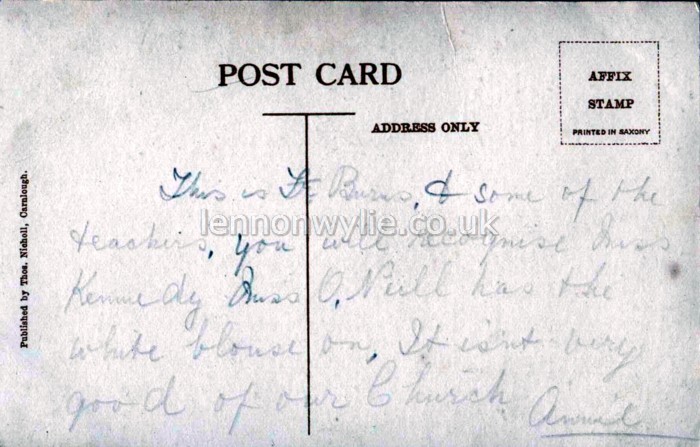 POST CARD
AFFIX
STAMP
PRINTED IN SAXONY
ADDRESS ONLY
Published by Thos. Nicholl, Carnlough.
This is Fr Burns, & some of the
teachers, you will recognise Miss
Kennedy Miss O,Neill has the
white blouse on, It isn't very
good of our Church
Annie
lennonwylie.co.uk